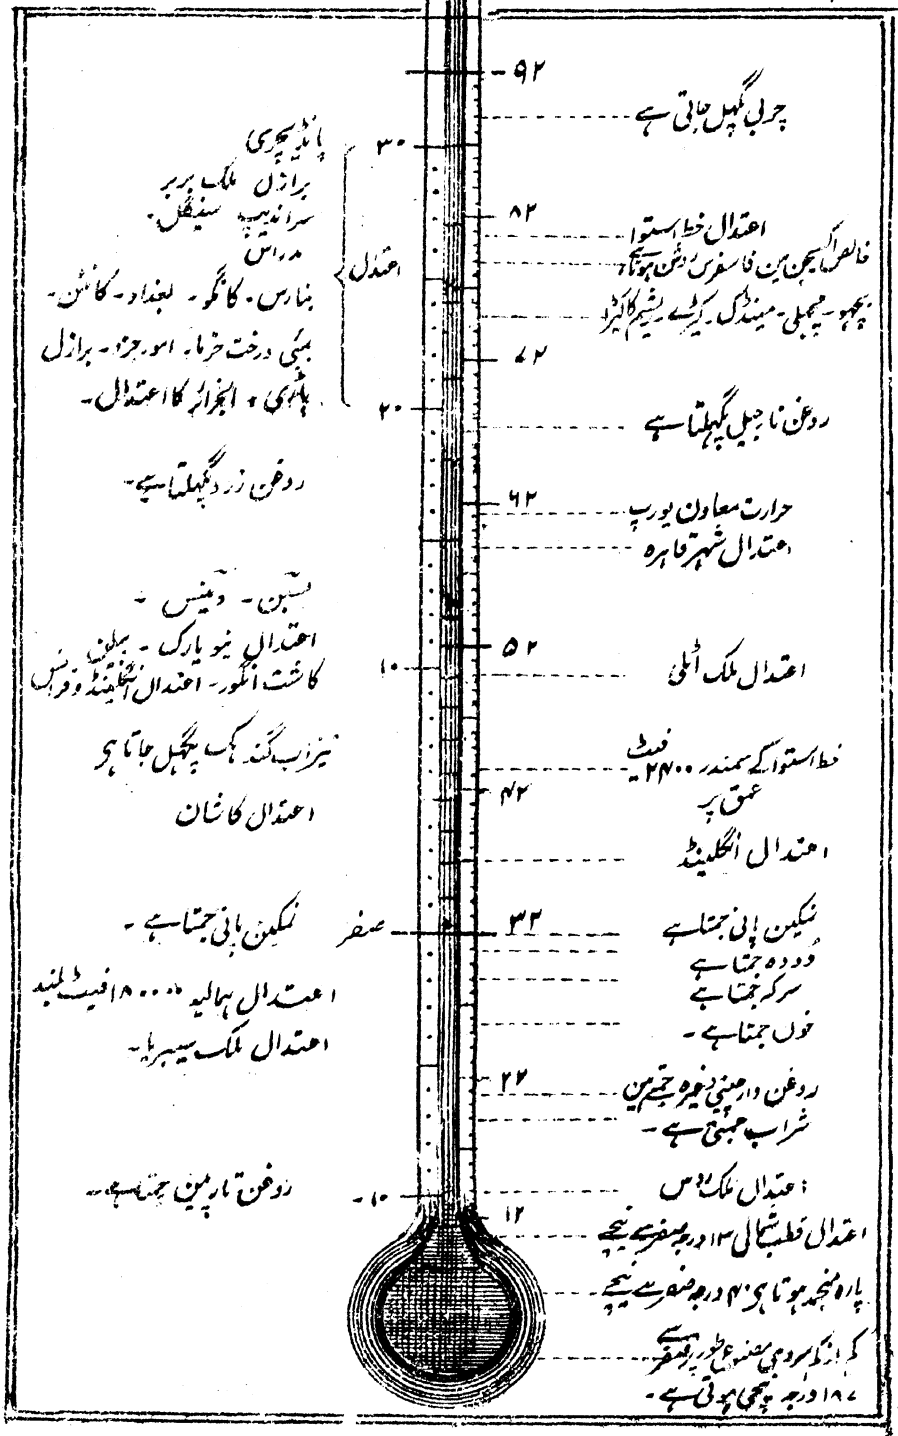 ۹۲
چربی پگہل جاتی ہے
۳۰
پانڈیچری
برازل ملک بربر
سراندیپ سینگل۔
مدراس
بنارس۔ کانگو۔ بغداد۔ کانٹن۔
بمبئی درخت خرما۔ امور جزا۔ برازل
الجزائر کا اعتدال۔
اعتدال
۸۲
اعتدال خط استوا
خالص آکسیجن مین فاسفرس روشن ہوتا ہے
بچھو۔ مچھلی۔ مینڈک۔ کیڑے۔ ریشم کا کیڑا
۷۲
۲۰
روغن نارجیل پگہلتا ہے
روغن زرد پگہلتا ہے۔
۶۲
حرارت معاون یورپ
اعتدال شہر قاہرہ
لسبن۔ وینس۔
اعتدال نیویارک۔ برلن
کاشت انگور۔ اعتدال انگلینڈ و فرانس
۵۲
۱۰
اعتدال ملک اٹلی
تیزاب گندہک پگہل جاتا ہی
خط استوا کے سمندر ۲۴۰۰ فیٹ
عمق پر
۴۲
اعتدال کاشان
اعتدال انگلینڈ
۳۲
صفر
نمکین پانی جمتا ہے۔
نمکین پانی جمتا ہے
دودہ جمتا ہے
سرکہ جمتا ہے
اعتدال ہمالیہ ۱۸۰۰۰ فیٹ بلند
خون جمتا ہے۔
اعتدال ملک سیبریا۔
۲۲
روغن دارچینی وغیرہ جمتے ہین
شراب جمتی ہے۔
روغن تارپین جمتا ہے۔
۱۰-
اعتدال ملک روس
۱۲
اعتدال قطب شمالی ۱۳ درجہ صفر سے نیچے
پارہ منجمد ہوتا ہی ۴۰ درجہ صفر سے نیچے
کم از کم سردی مصنوعی طور پر صفر سے
۱۸۷ درجہ نیچی ہوتی ہے۔